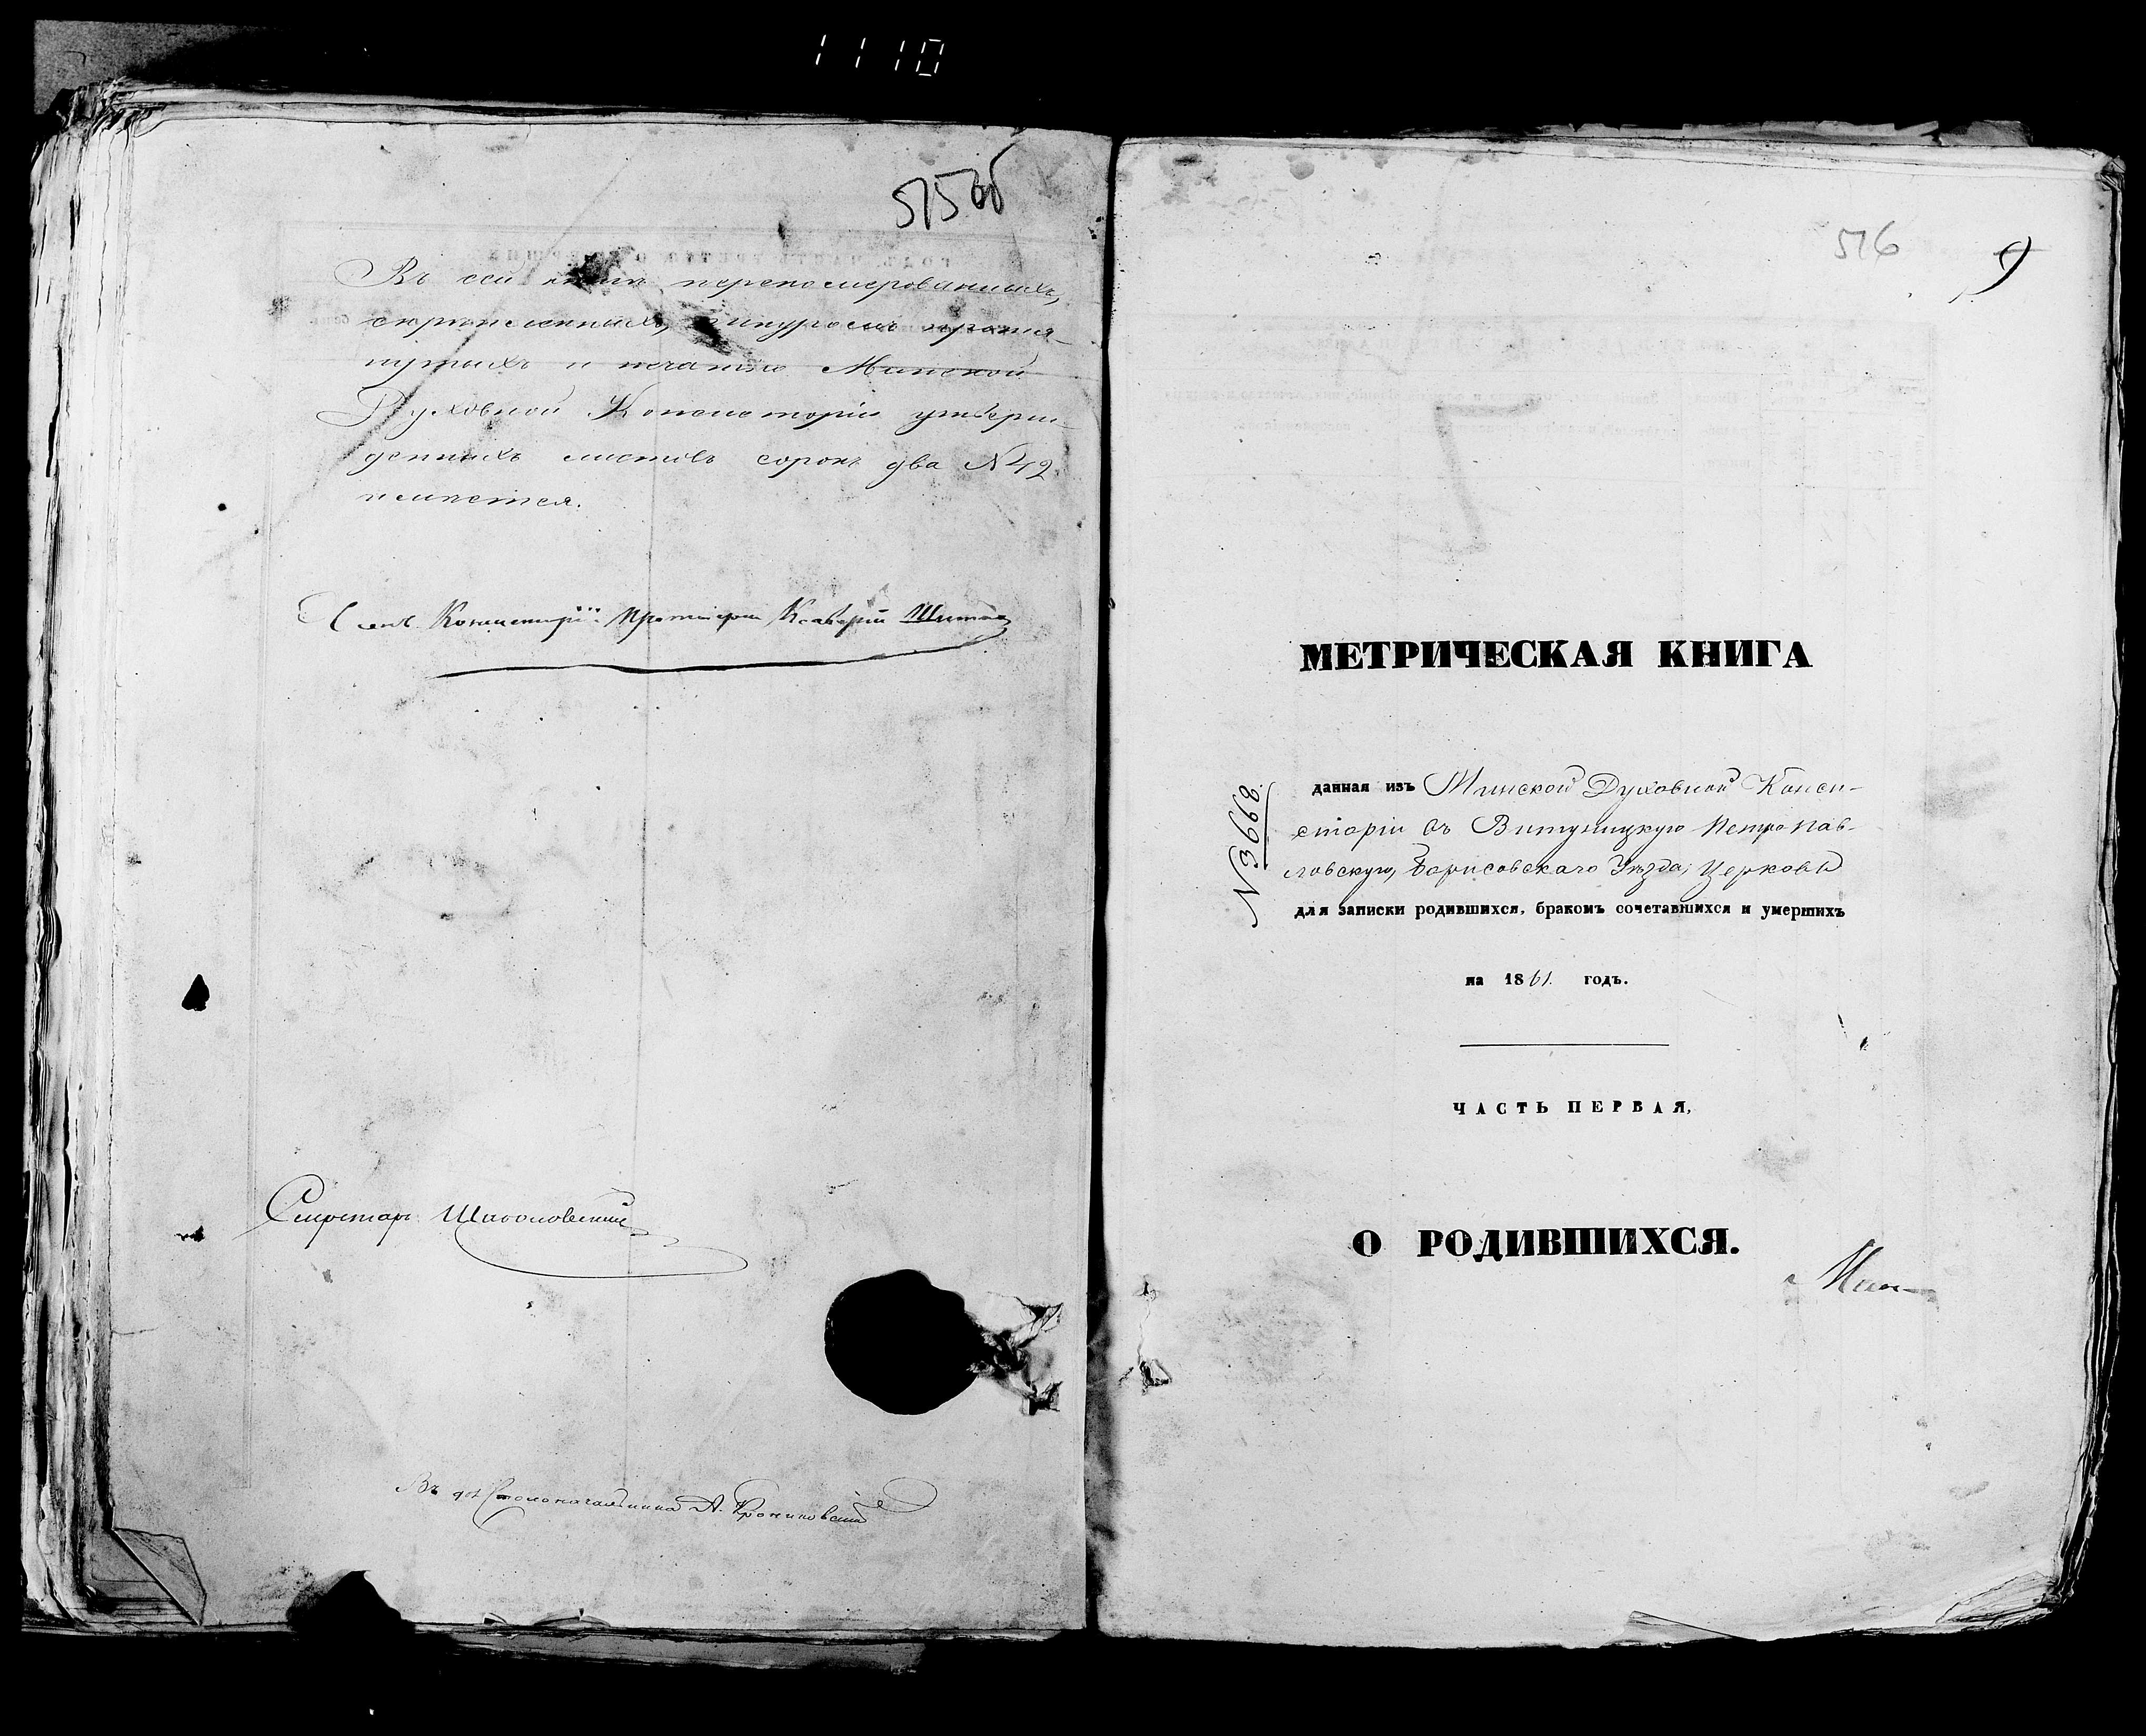 1110
515об
Въ сей книгѣ перенумерованныхъ,
скрѣпленныхъ, шнуромъ протя-
нутыхъ и печатью Минской
Духовной Консисторіи утверж-
денныхъ листовъ сорокъ два №42
имѣется.
Членъ Консисторіи Протоіерей
Секретарь
Въ дол. Столоначальника А.
516
9
МЕТРИЧЕСКАЯ КНИГА
№3668
данная изъ Минской Духовной Конси-
сторіи въ Витуницкую Петропав-
ловскую, Борисовскаго Уѣзда, Церковь
для записки родившихся, бракомъ сочетавшихся и умершихъ
на 1861. годъ.
ЧАСТЬ ПЕРВАЯ,
О РОДИВШИХСЯ.